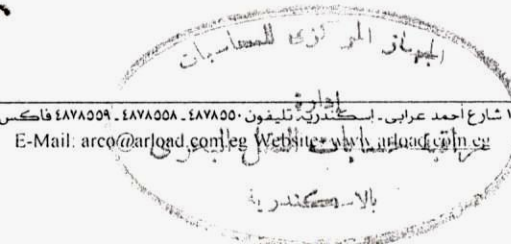 الجهاز المركزى للمحاسبات
إدارة
١ شارع أحمد عرابى - إسكندرية تليفون ٤٨٧٨٥٥٠ - ٤٨٧٨٥٥٨ - ٤٨٧٨٥٥٩ فاكس
E-Mail: arco@arload.com.eg Website: www.arload.com.eg
مراقبة حسابات النقل البحرى
بالاسكندرية